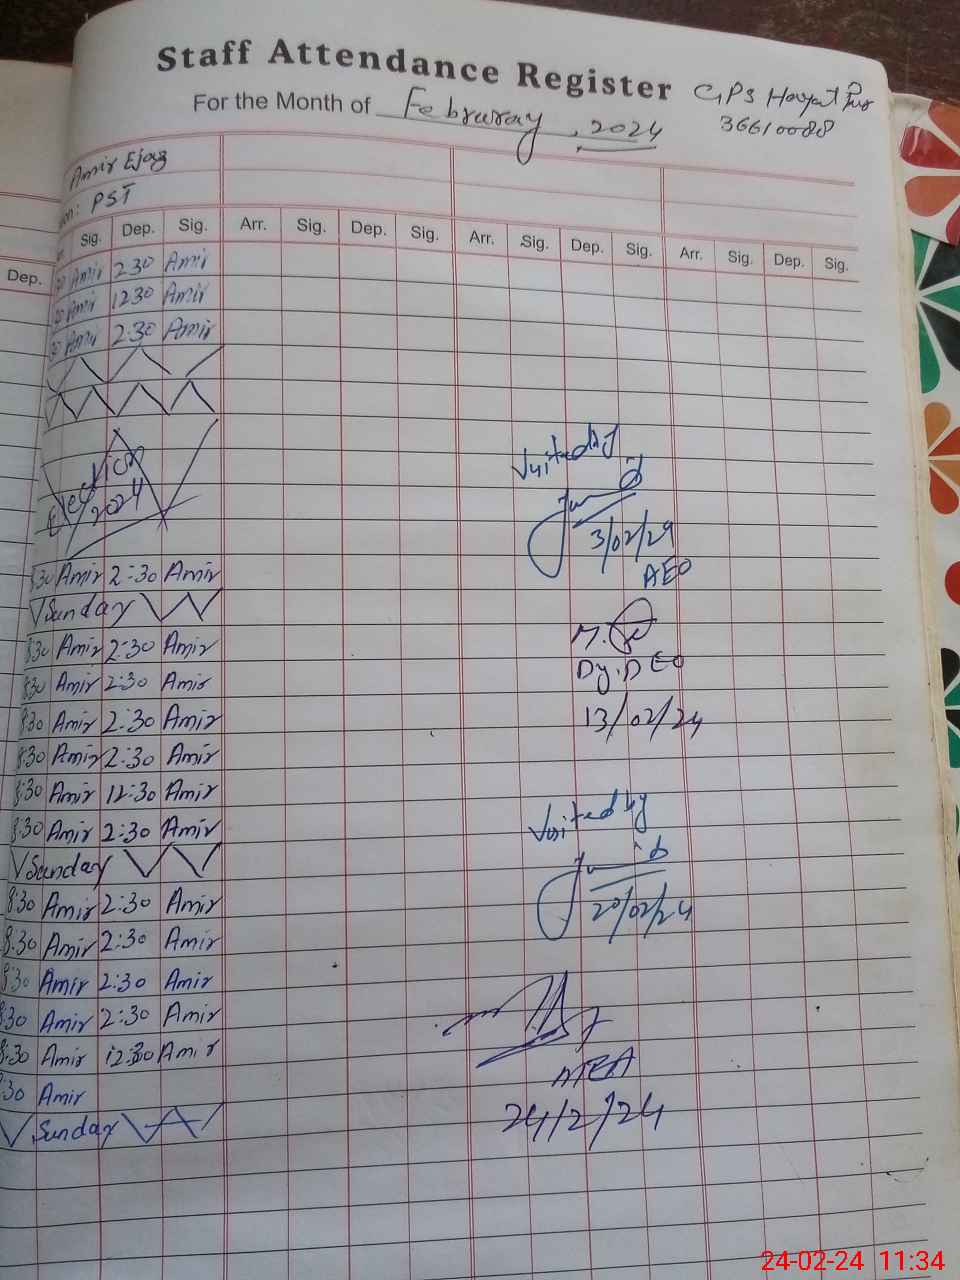 Staff Attendance Register
GPS Hayat Pur
36610088
For the Month of Februray, 2024
Amir Ejaz
PST
Sig. Dep. Sig. Arr. Sig. Dep. Sig. Arr. Sig. Dep. Sig. Arr. Sig. Dep. Sig.
Dep.
Amir 2:30 Amir
Amir 1230 Amir
Amir 2:30 Amir
Election
2024
Visited by
3/02/24
AEO
8:30 Amir 2:30 Amir
Sunday
8:30 Amir 2:30 Amir
8:30 Amir 2:30 Amir
8:30 Amir 2:30 Amir
8:30 Amir 2:30 Amir
8:30 Amir 12:30 Amir
8:30 Amir 2:30 Amir
Dy. DEO
13/02/24
Sunday
8:30 Amir 2:30 Amir
8:30 Amir 2:30 Amir
8:30 Amir 2:30 Amir
8:30 Amir 2:30 Amir
8:30 Amir 12:30 Amir
:30 Amir
Sunday
Visited by
20/02/24
MEA
24/2/24
24-02-24 11:34